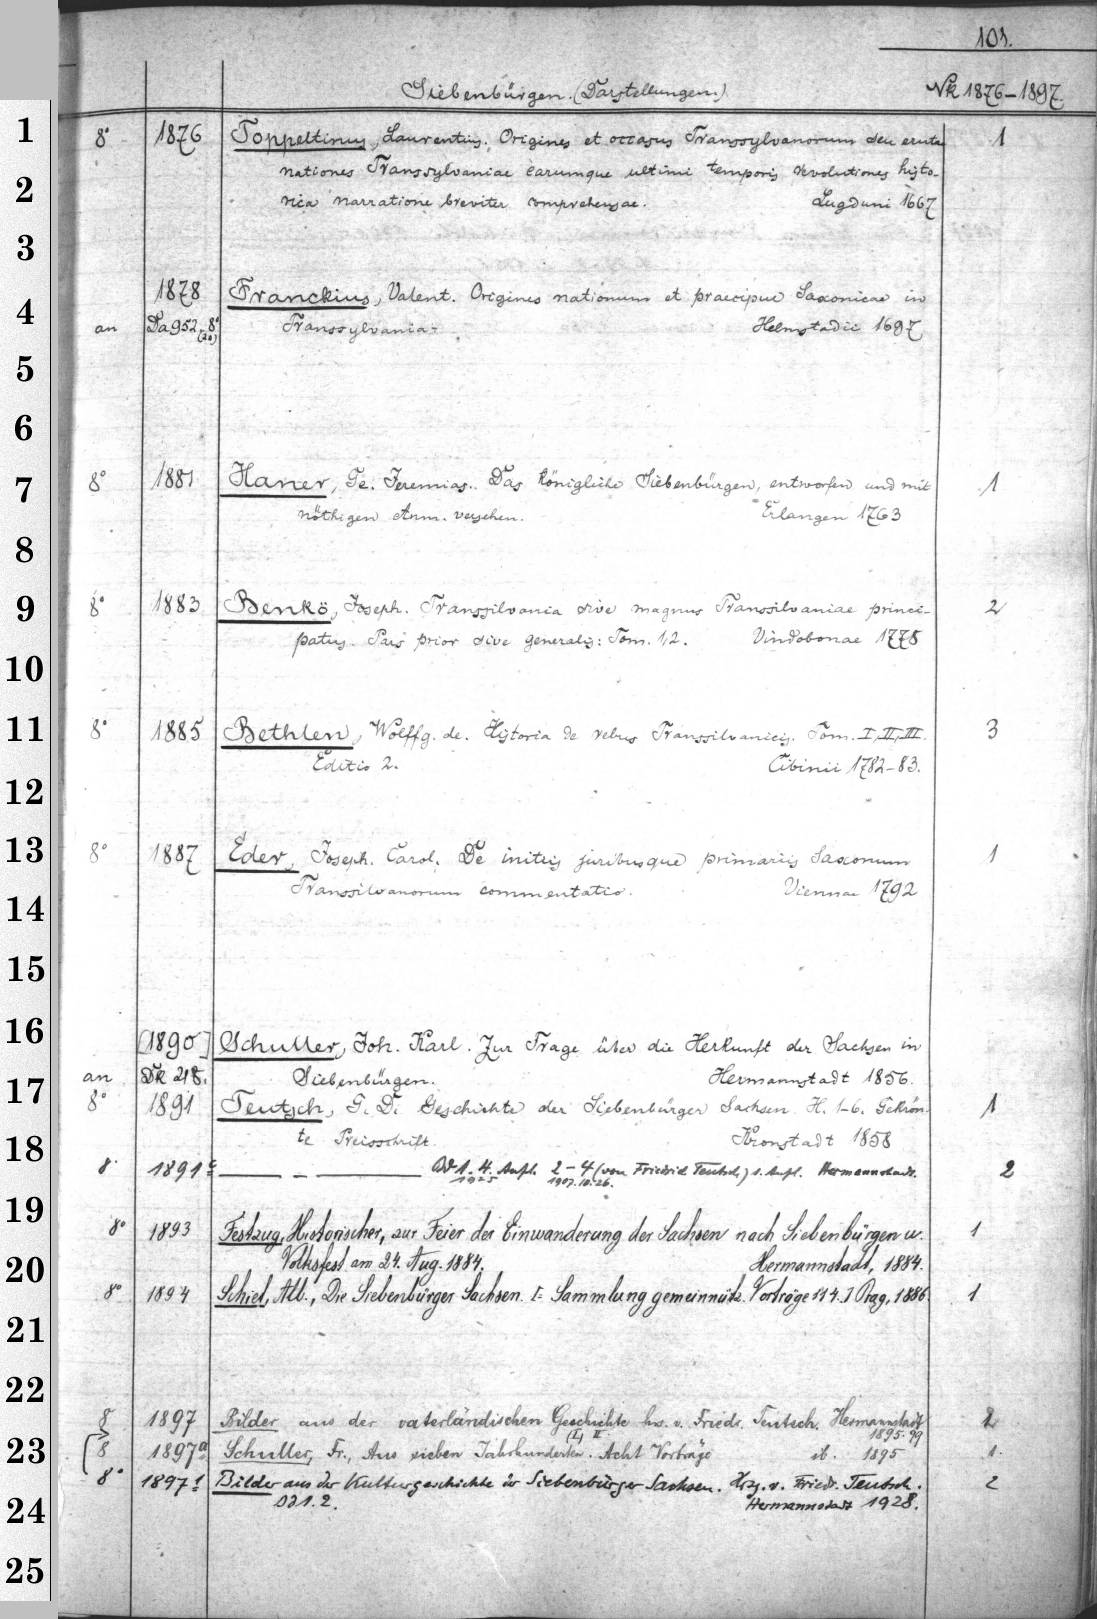 101.
Siebenbürgen. (Darstellungen.) Nk 1876-1897
8° 1876 Toppeltinus, Laurentius. Origines et occasus Transsylvanorum seu erutae 1
nationes Transsylvaniae earumque ultimi temporis revolutiones histo-
rica narratione breviter comprehensae. Lugduni 1667
1878 Franckius, Valent. Origines nationum et praecipue Saxonicae in
an Da 952, 8° (20) Transsylvania. Helmstadii 1697
8° 1881 Haner, Ge. Jeremias. Das königliche Siebenbürgen, entworfen und mit 1
nöthigen Anm. versehen. Erlangen 1763
8° 1883 Benkö, Joseph. Transsilvania sive magnus Transsilvaniae princi- 2
patus. Pars prior sive generalis: Tom. 1,2. Vindobonae 1778
8° 1885 Bethlen, Wolffg. de. Historia de rebus Transsilvanicis. Tom. I, II, III. 3
Editio 2. Cibinii 1782-83.
8° 1887 Eder, Joseph. Carol. De initiis juribusque primariis Saxonum 1
Transsilvanorum commentatio. Viennae 1792
[1890] Schuller, Joh. Karl. Zur Frage über die Herkunft der Sachsen in
an Dk 218. Siebenbürgen. Hermannstadt 1856.
8° 1891 Teutsch, G. D. Geschichte der Siebenbürger Sachsen H. 1-6. Gekrön- 1
te Preisschrift. Kronstadt 1858
8° 1891c — — — Bd 1. 4. Aufl. 2-4 (von Friedrich Teutsch) 1. Aufl. Hermannstadt. 2
1925 1907.10.26.
8° 1893 Festzug, Historischer, zur Feier der Einwanderung der Sachsen nach Siebenbürgen u. 1
Volksfest am 24. Aug. 1884. Hermannstadt, 1884.
8° 1894 Schiel, Alb., Die Siebenbürger Sachsen. [= Sammlung gemeinnütz. Vorträge 114.] Prag, 1886. 1
8 1897 Bilder aus der vaterländischen Geschichte hrs. v. Friedr. Teutsch. Hermannstadt 2
(I) II 1895-99
8 1897a Schuller, Fr., Aus sieben Jahrhunderten. Acht Vorträge ib. 1895 1.
8° 1897f Bilder aus der Kulturgeschichte der Siebenbürger Sachsen. Hrg. v. Friedr. Teutsch. 2
Bd 1. 2. Hermannstadt 1928.
1
2
3
4
5
6
7
8
9
10
11
12
13
14
15
16
17
18
19
20
21
22
23
24
25